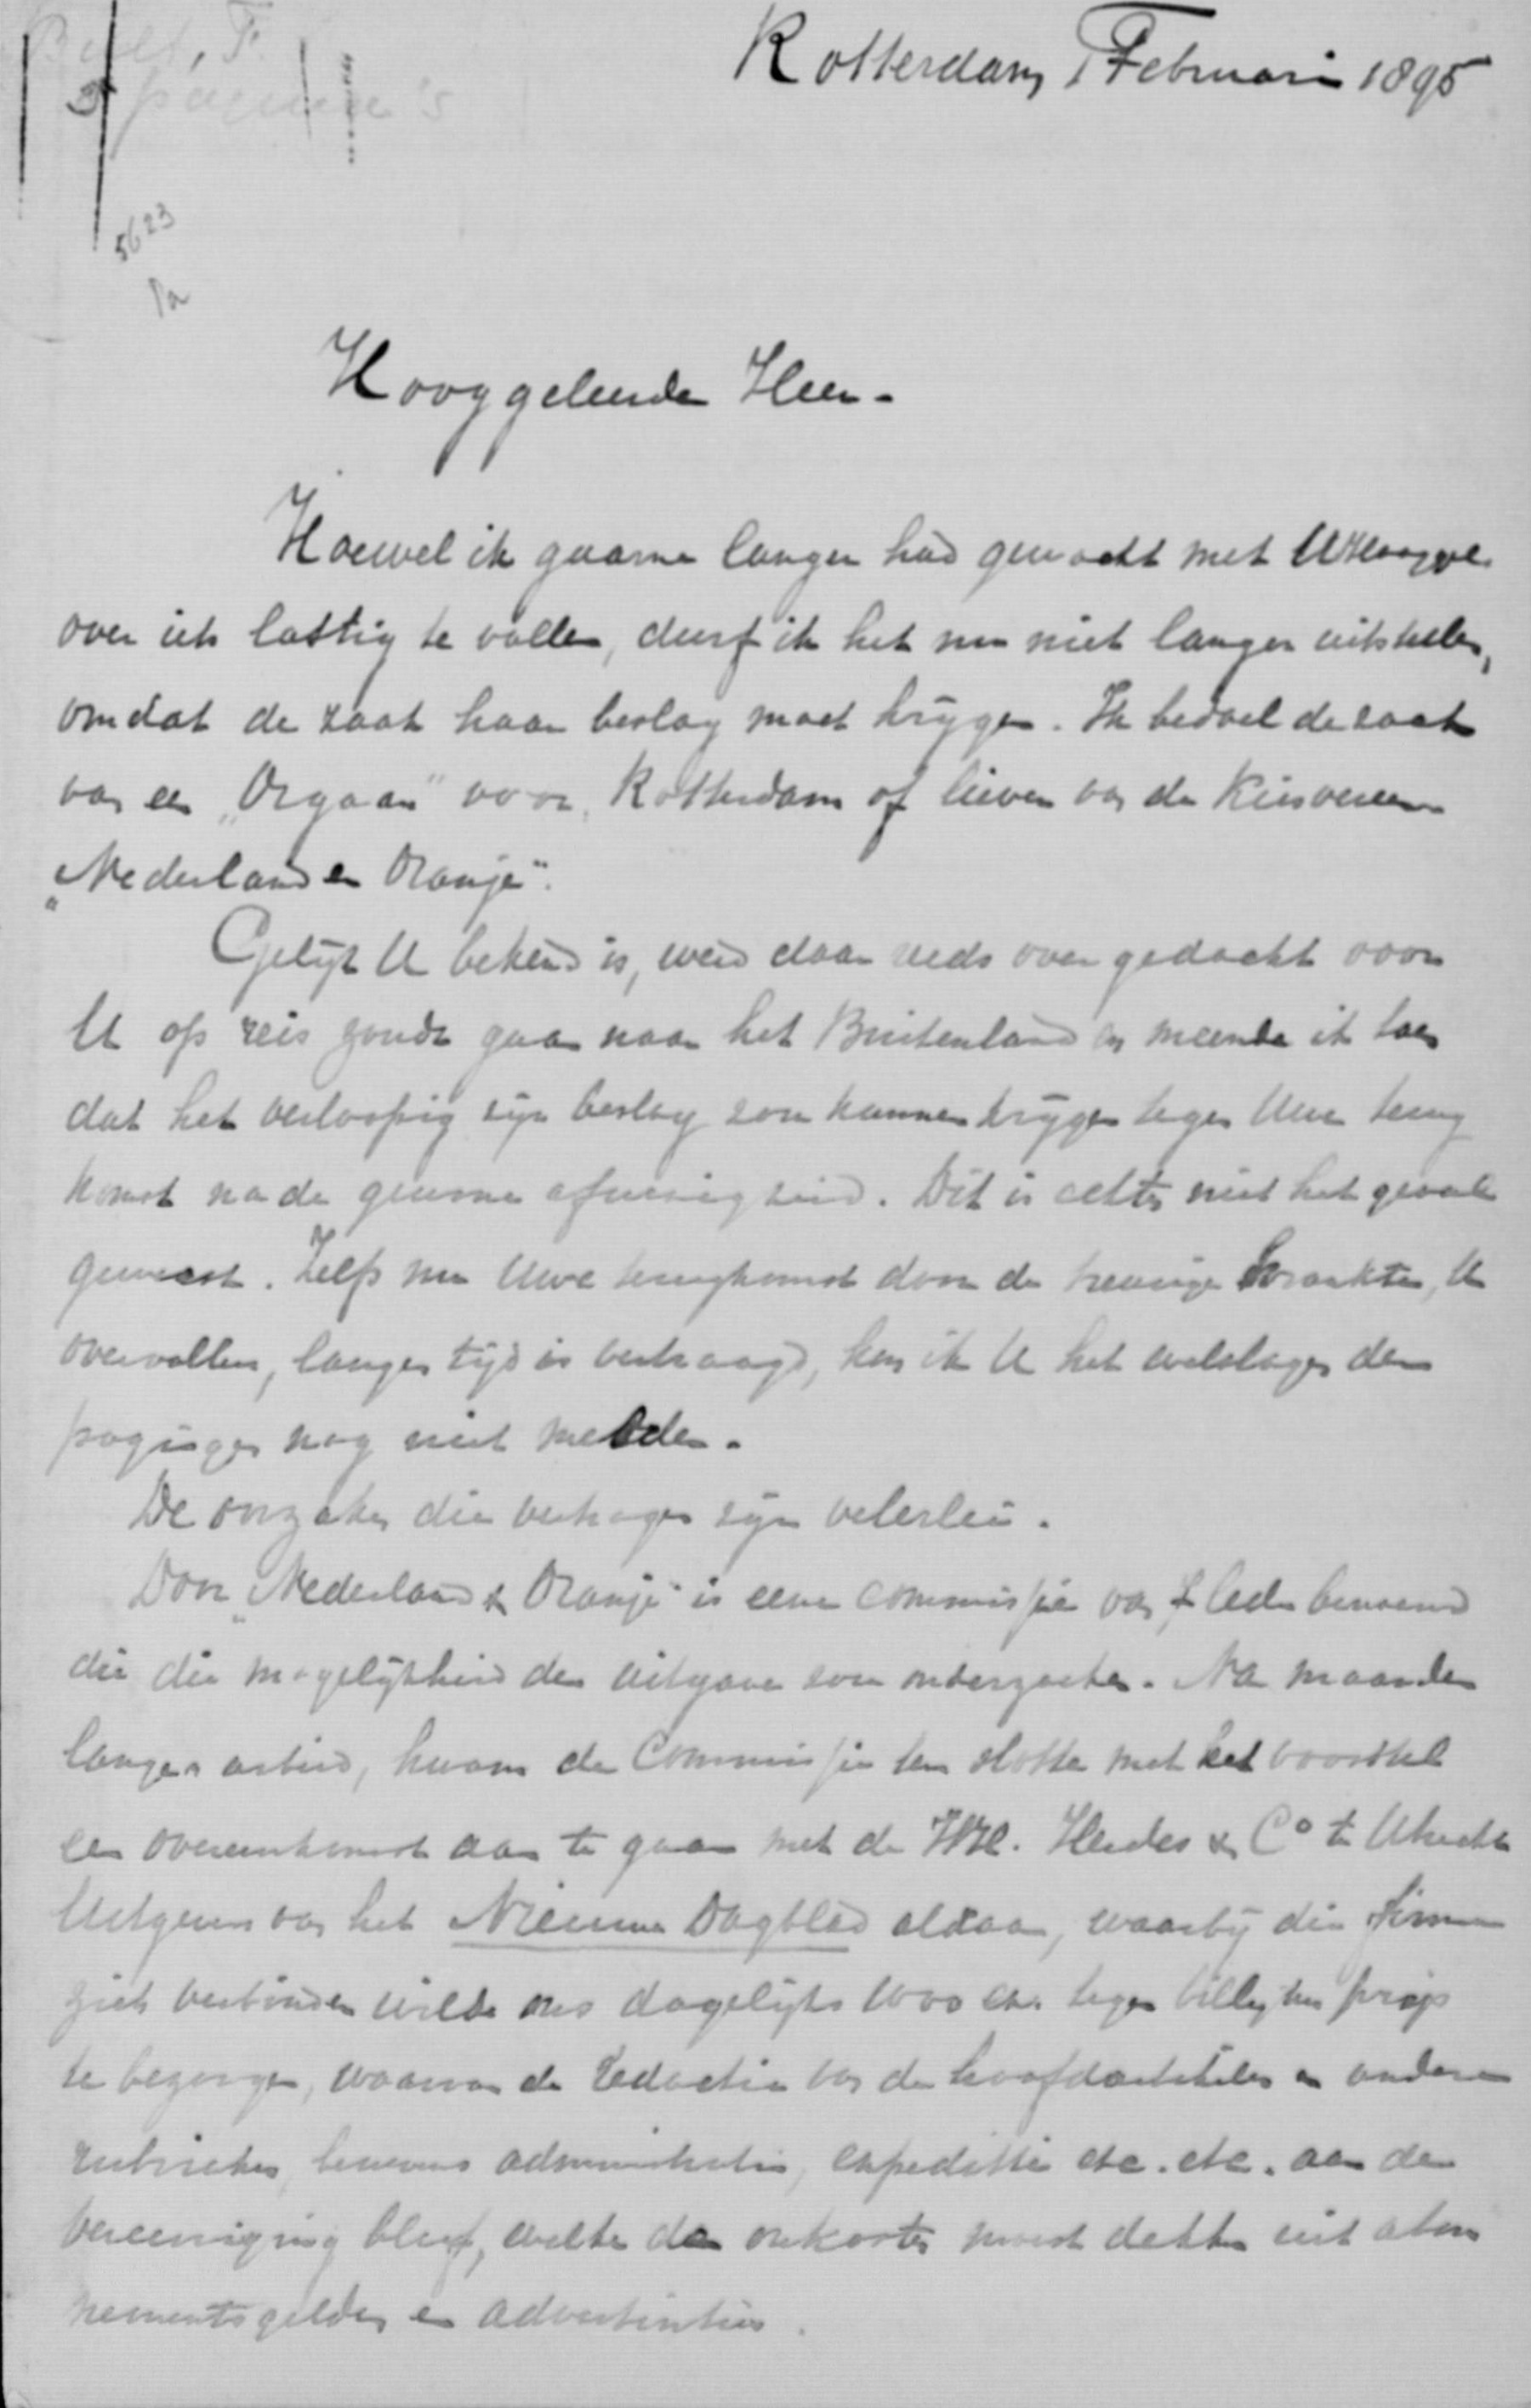 Rotterdam, 1 Februari 1895
5623
Pa
Hooggeleerde Heer.
Hoewel ik gaarne langer had gewacht met UHooggel.
over iets lastig te vallen, durf ik het nu niet langer uitstellen,
omdat de zaak haar beslag moet krijgen. Ik bedoel de zaak
van een „Orgaan" voor Rotterdam of liever van de Kiesvereen
„Nederland en Oranje".
Gelijk U bekend is, werd daar reeds over gedacht voor
U op reis zoude gaan naar het Buitenland en meende ik toen
dat het voorloopig zijn beslag zou kunnen krijgen tegen Uwe terug
komst na de gewone afwezigheid. Dit is echter niet het geval
geweest. Zelfs nu Uwe terugkomst door de treurige krankte, U
overvallen, langen tijd is vertraagd, kan ik U het welslagen der
pogingen nog niet melden.
De oorzaken die vertragen zijn velerlei.
Door „Nederland & Oranje" is eene commissie van leden benoemd
die die mogelijkheid der uitgave zou onderzoeken. Na maanden
langen arbeid, kwam de Commissie ten slotte met het voorstel
een overeenkomst aan te gaan met de HH. & Co te Utrecht
Uitgevers van het Nieuwe Dagblad aldaar, waarbij die firma
zich verbinden wilde ons dagelijks 1000 ex. tegen billijken prijs
te bezorgen, waarvan de redactie van de hoofdartikelen en andere
rubrieken, benevens administratie, expeditie etc. etc. aan de
Vereeniging bleef, welke de onkosten moest dekken uit abon
nementsgelden en advertentien.